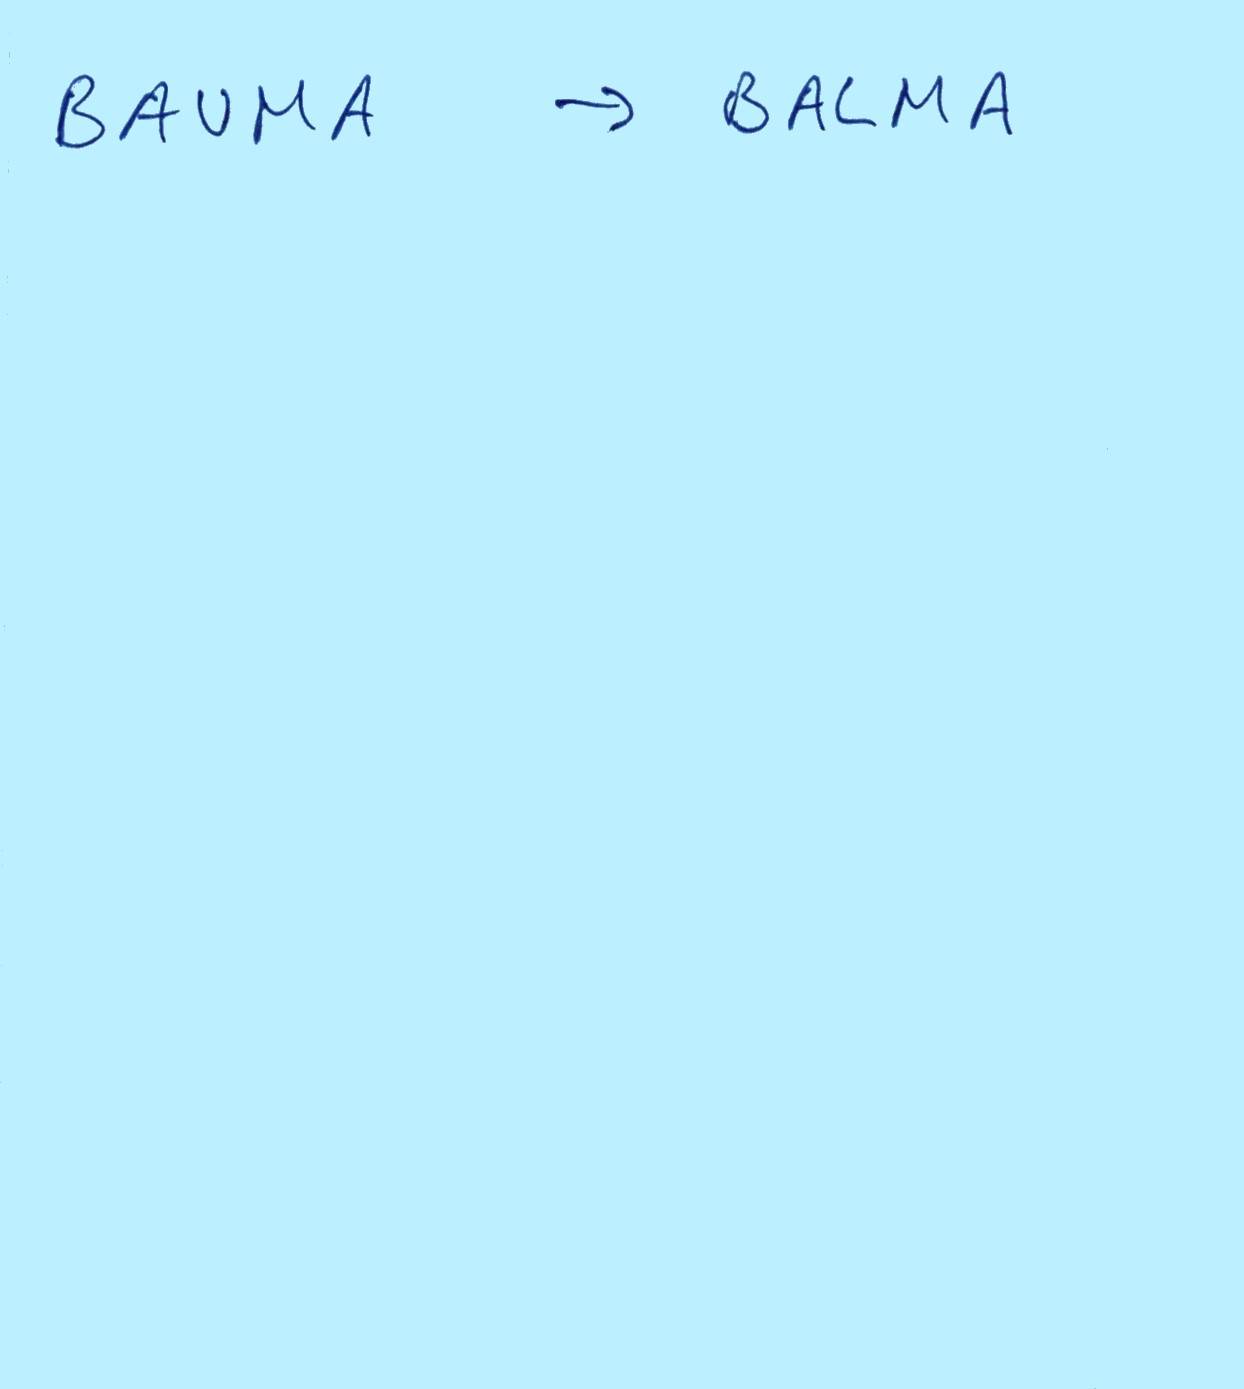 BAUMA → BALMA